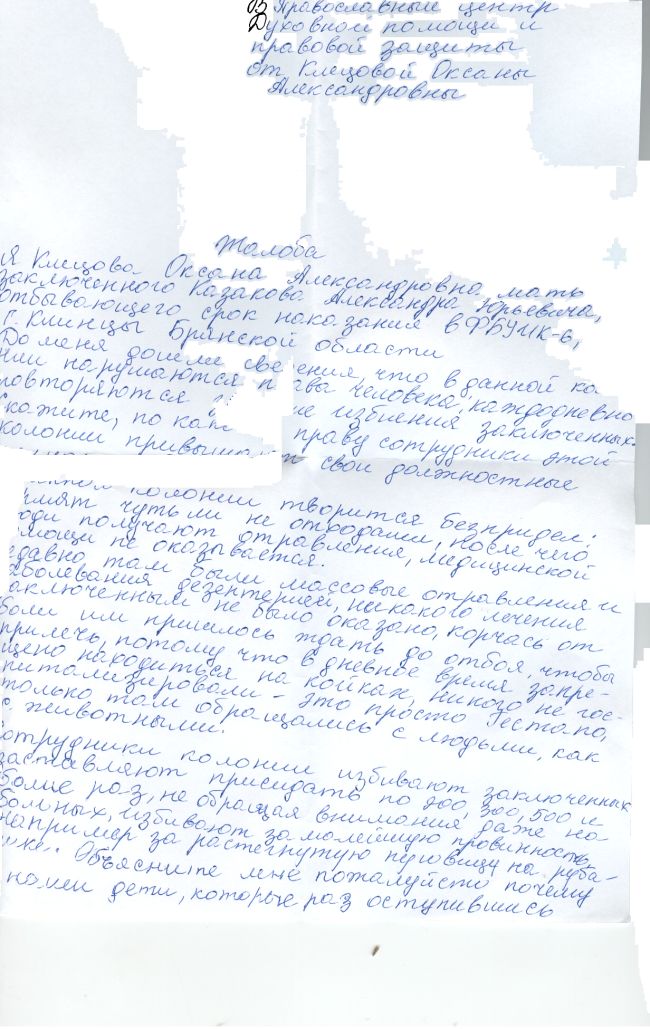 В Православный центр
Духовной помощи и
правовой защиты
от Клецовой Оксаны
Александровны
Жалоба
Я Клецова Оксана Александровна, мать
заключенного Казакова Александра Юрьевича,
отбывающего срок наказания в ФБУ ИК-6,
г. Клинцы Брянской области
До меня дошли сведения что в данной ко
нии нарушаются права человека, каждодневно
повторяются избиения заключенных.
Скажите, по как праву сотрудники этой
колонии привышают свои должностные
колонии творится безпридел.
рмят чуть ли не отходами, после чего
юди получают отравления, медицинской
мощи не оказывается.
едавно там были массовые отравления и
аболевания дезентерией, никакого лечения
аключенным не было оказано, корчась от
боли им пришлось ждать до отбоя, чтобы
прилечь, потому что в дневное время запре-
щено находиться на койках, никого не гос-
питализировали - это просто Гестапо,
только там обращались с людьми, как
с животными.
отрудники колонии избивают заключенных
заставляют приседать по 200, 300, 500 и
более раз, не обращая внимания даже на
больных, избивают за малейшую провинность,
например за растегнутую пуговицу на руба-
шке. Объясните мне пожалуйсто почему
наши дети, которые раз оступившись